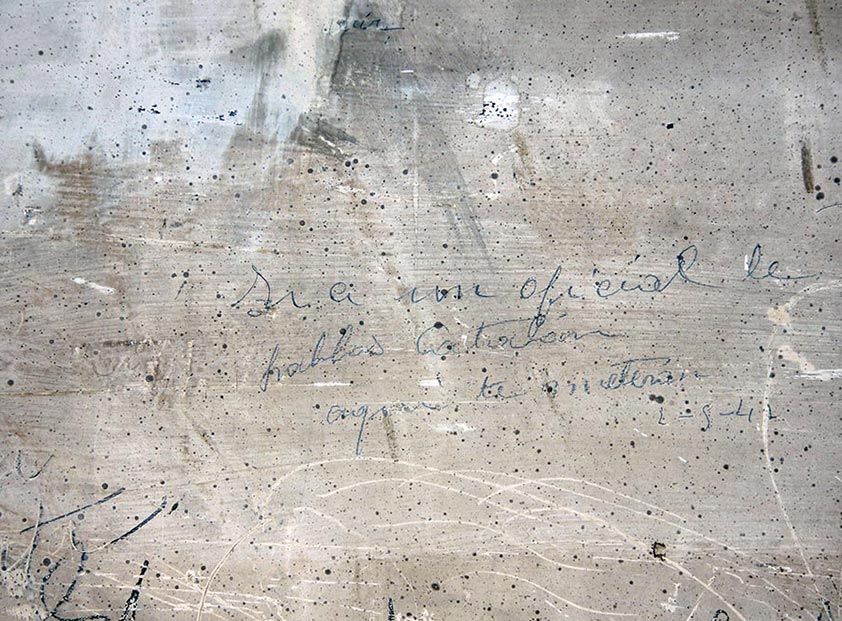 Si a un oficial le
hablas Catalán
aquí te meteran
2-9-42